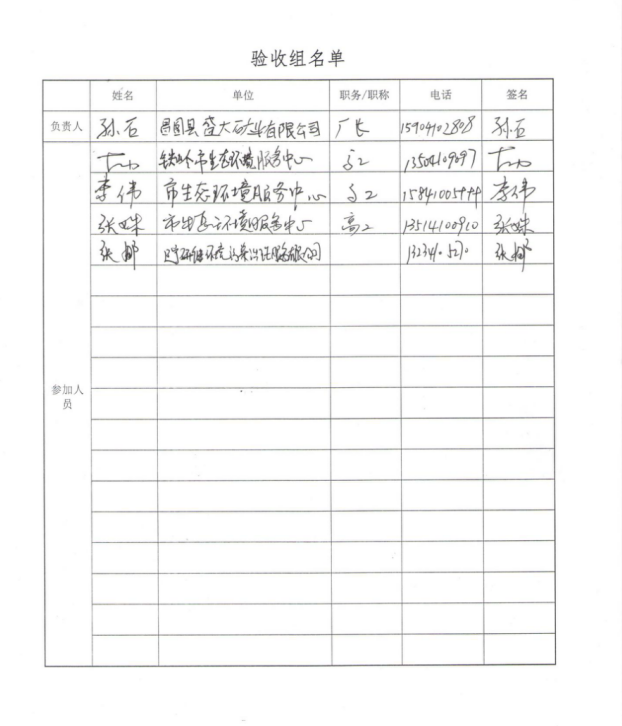 验收组名单
姓名 单位 职务/职称 电话 签名
负责人 孙石 昌图县盛大矿业有限公司 厂长 15904102808 孙石
铁岭市生态环境服务中心 高工
李伟 市生态环境服务中心 高工 李伟
张姝 市生态环境服务中心 高工 13514100910 张姝
张娜 张娜
参加人员